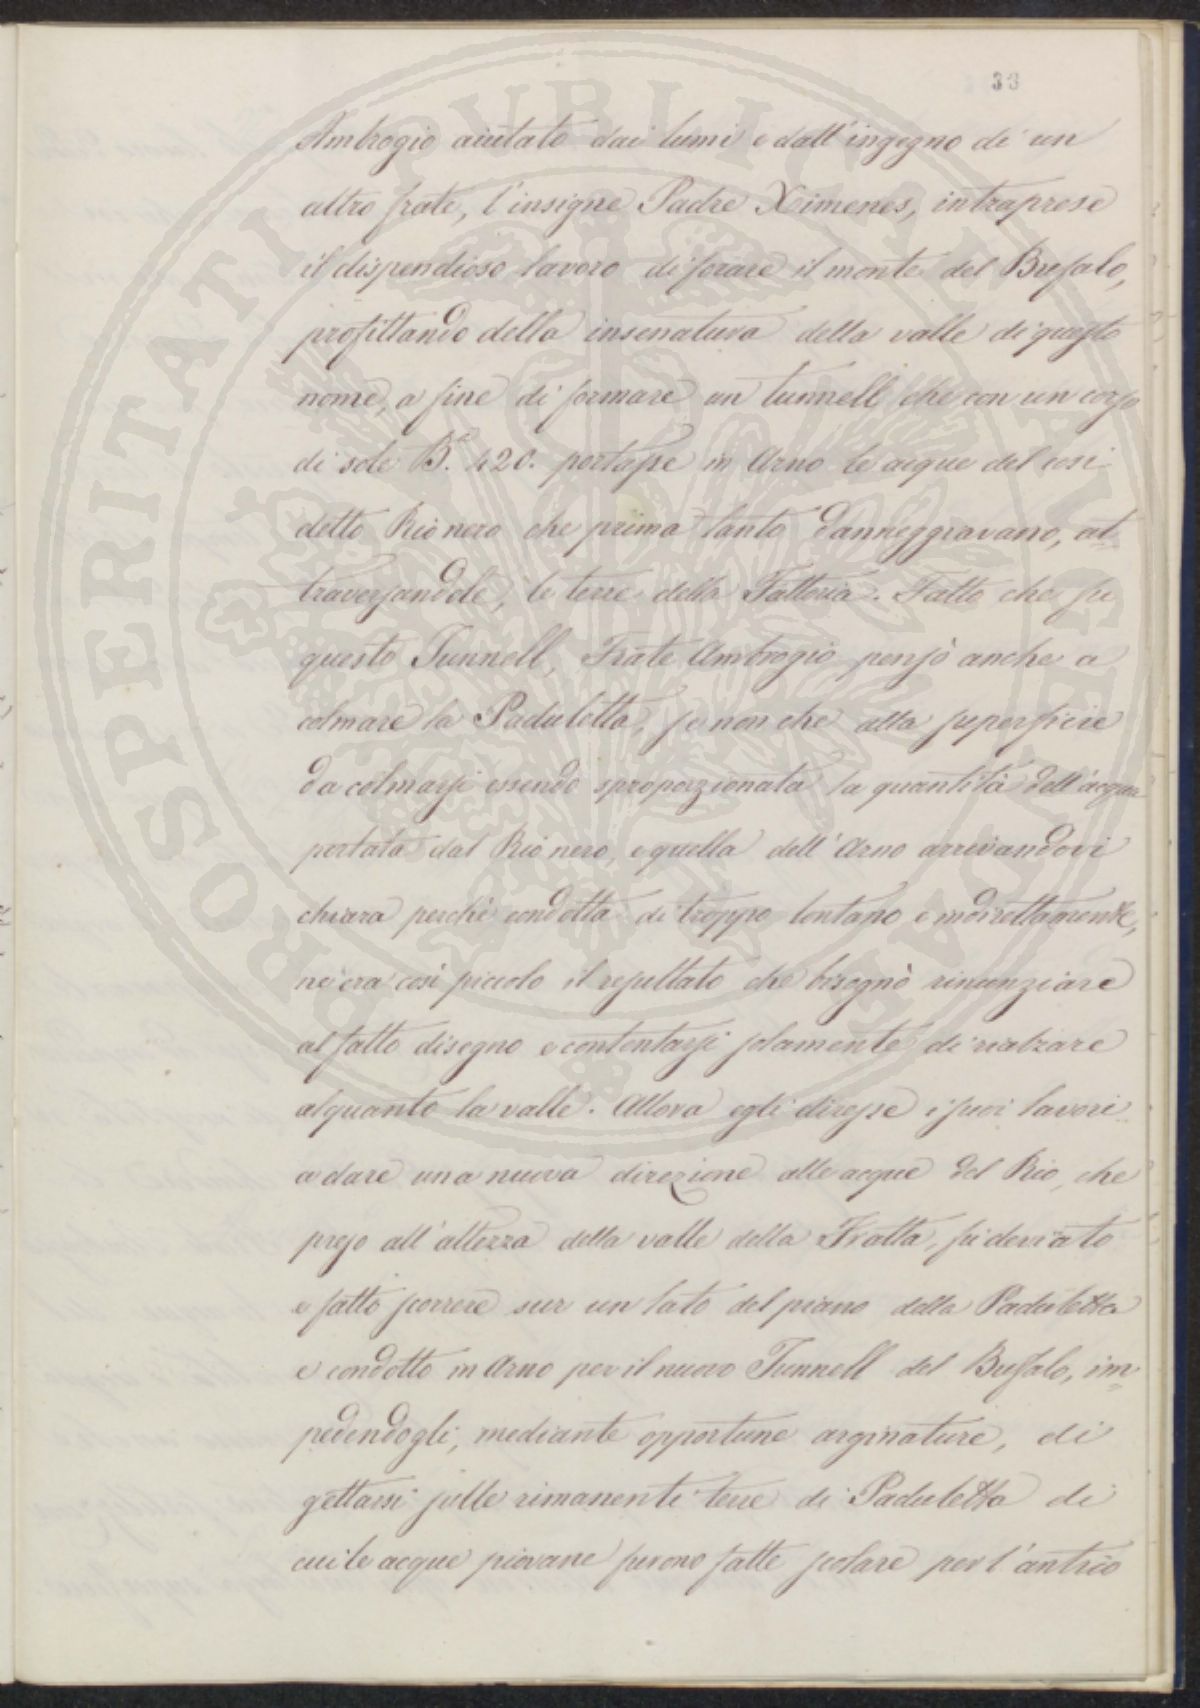 33
Ambrogio aiutato dai lumi e dall'ingegno di un
altro frate, l'insigne Padre Ximenes, intraprese
il dispendioso lavoro di forare il monte del Bufalo,
profittando della insenatura della valle di questo
nome, a fine di formare un tunnell che con un corso
di sole B.ª 420. portasse in Arno le acque del cosi
detto Rio nero che prima tanto danneggiavano, at
traversandole, le terre della Fattoria. Fatto che fu
questo Tunnell, Frate Ambrogio pensò anche a
colmare la Paduletta, se non che alla superficie
da colmarsi essendo sproporzionata la quantità dell'acqua
portata dal Rio nero, e quella dell'Arno arrivandovi
chiara perchè condotta di troppo lontano e indirettamente,
ne era così piccolo il resultato che bisognò rinunziare
al fatto disegno e contentarsi solamente di rialzare
alquanto la valle. Allora egli diresse i suoi lavori
a dare una nuova direzione alle acque del Rio, che
preso all'altezza della valle della Fratta, fu deviato
e fatto scorrere sur un lato del piano della Paduletta
e condotto in Arno per il nuovo Tunnell del Buffalo, im=
pedendogli, mediante opportune arginature, di
gettarsi sulle rimanenti terre di Paduletta di
cui le acque piovane furono fatte scolare per l'antico
PROSPERITATI PVBLICAE AVGENDAE